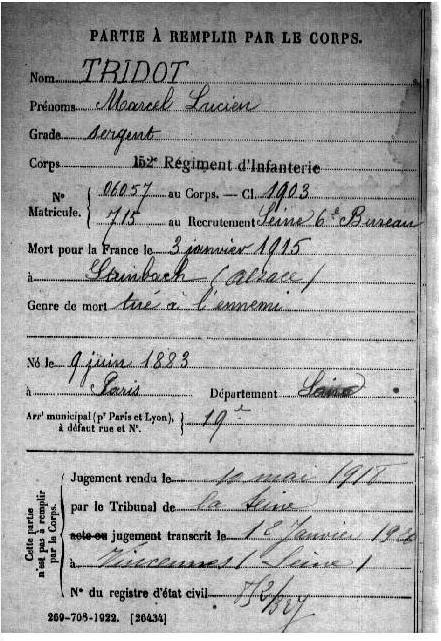 PARTIE À REMPLIR PAR LE CORPS.
Nom TRIDOT
Prénoms Marcel Lucien
Grade sergent
Corps 152e Régiment d'Infanterie
N° Matricule. { 06057 au Corps. — Cl. 1903
715 au Recrutement Seine 6e Bureau
Mort pour la France le 3 janvier 1915
à Steinbach (Alsace)
Genre de mort tué à l'ennemi
Né le 9 juin 1883
à Paris Département Seine
Arrt municipal (pr Paris et Lyon), à défaut rue et N°. } 19e
Cette partie n'est pas à remplir par le Corps.
Jugement rendu le mai
par le Tribunal de la Seine
acte ou jugement transcrit le Janvier
à Vincennes (Seine)
N° du registre d'état civil
269-708-1922. [26434]